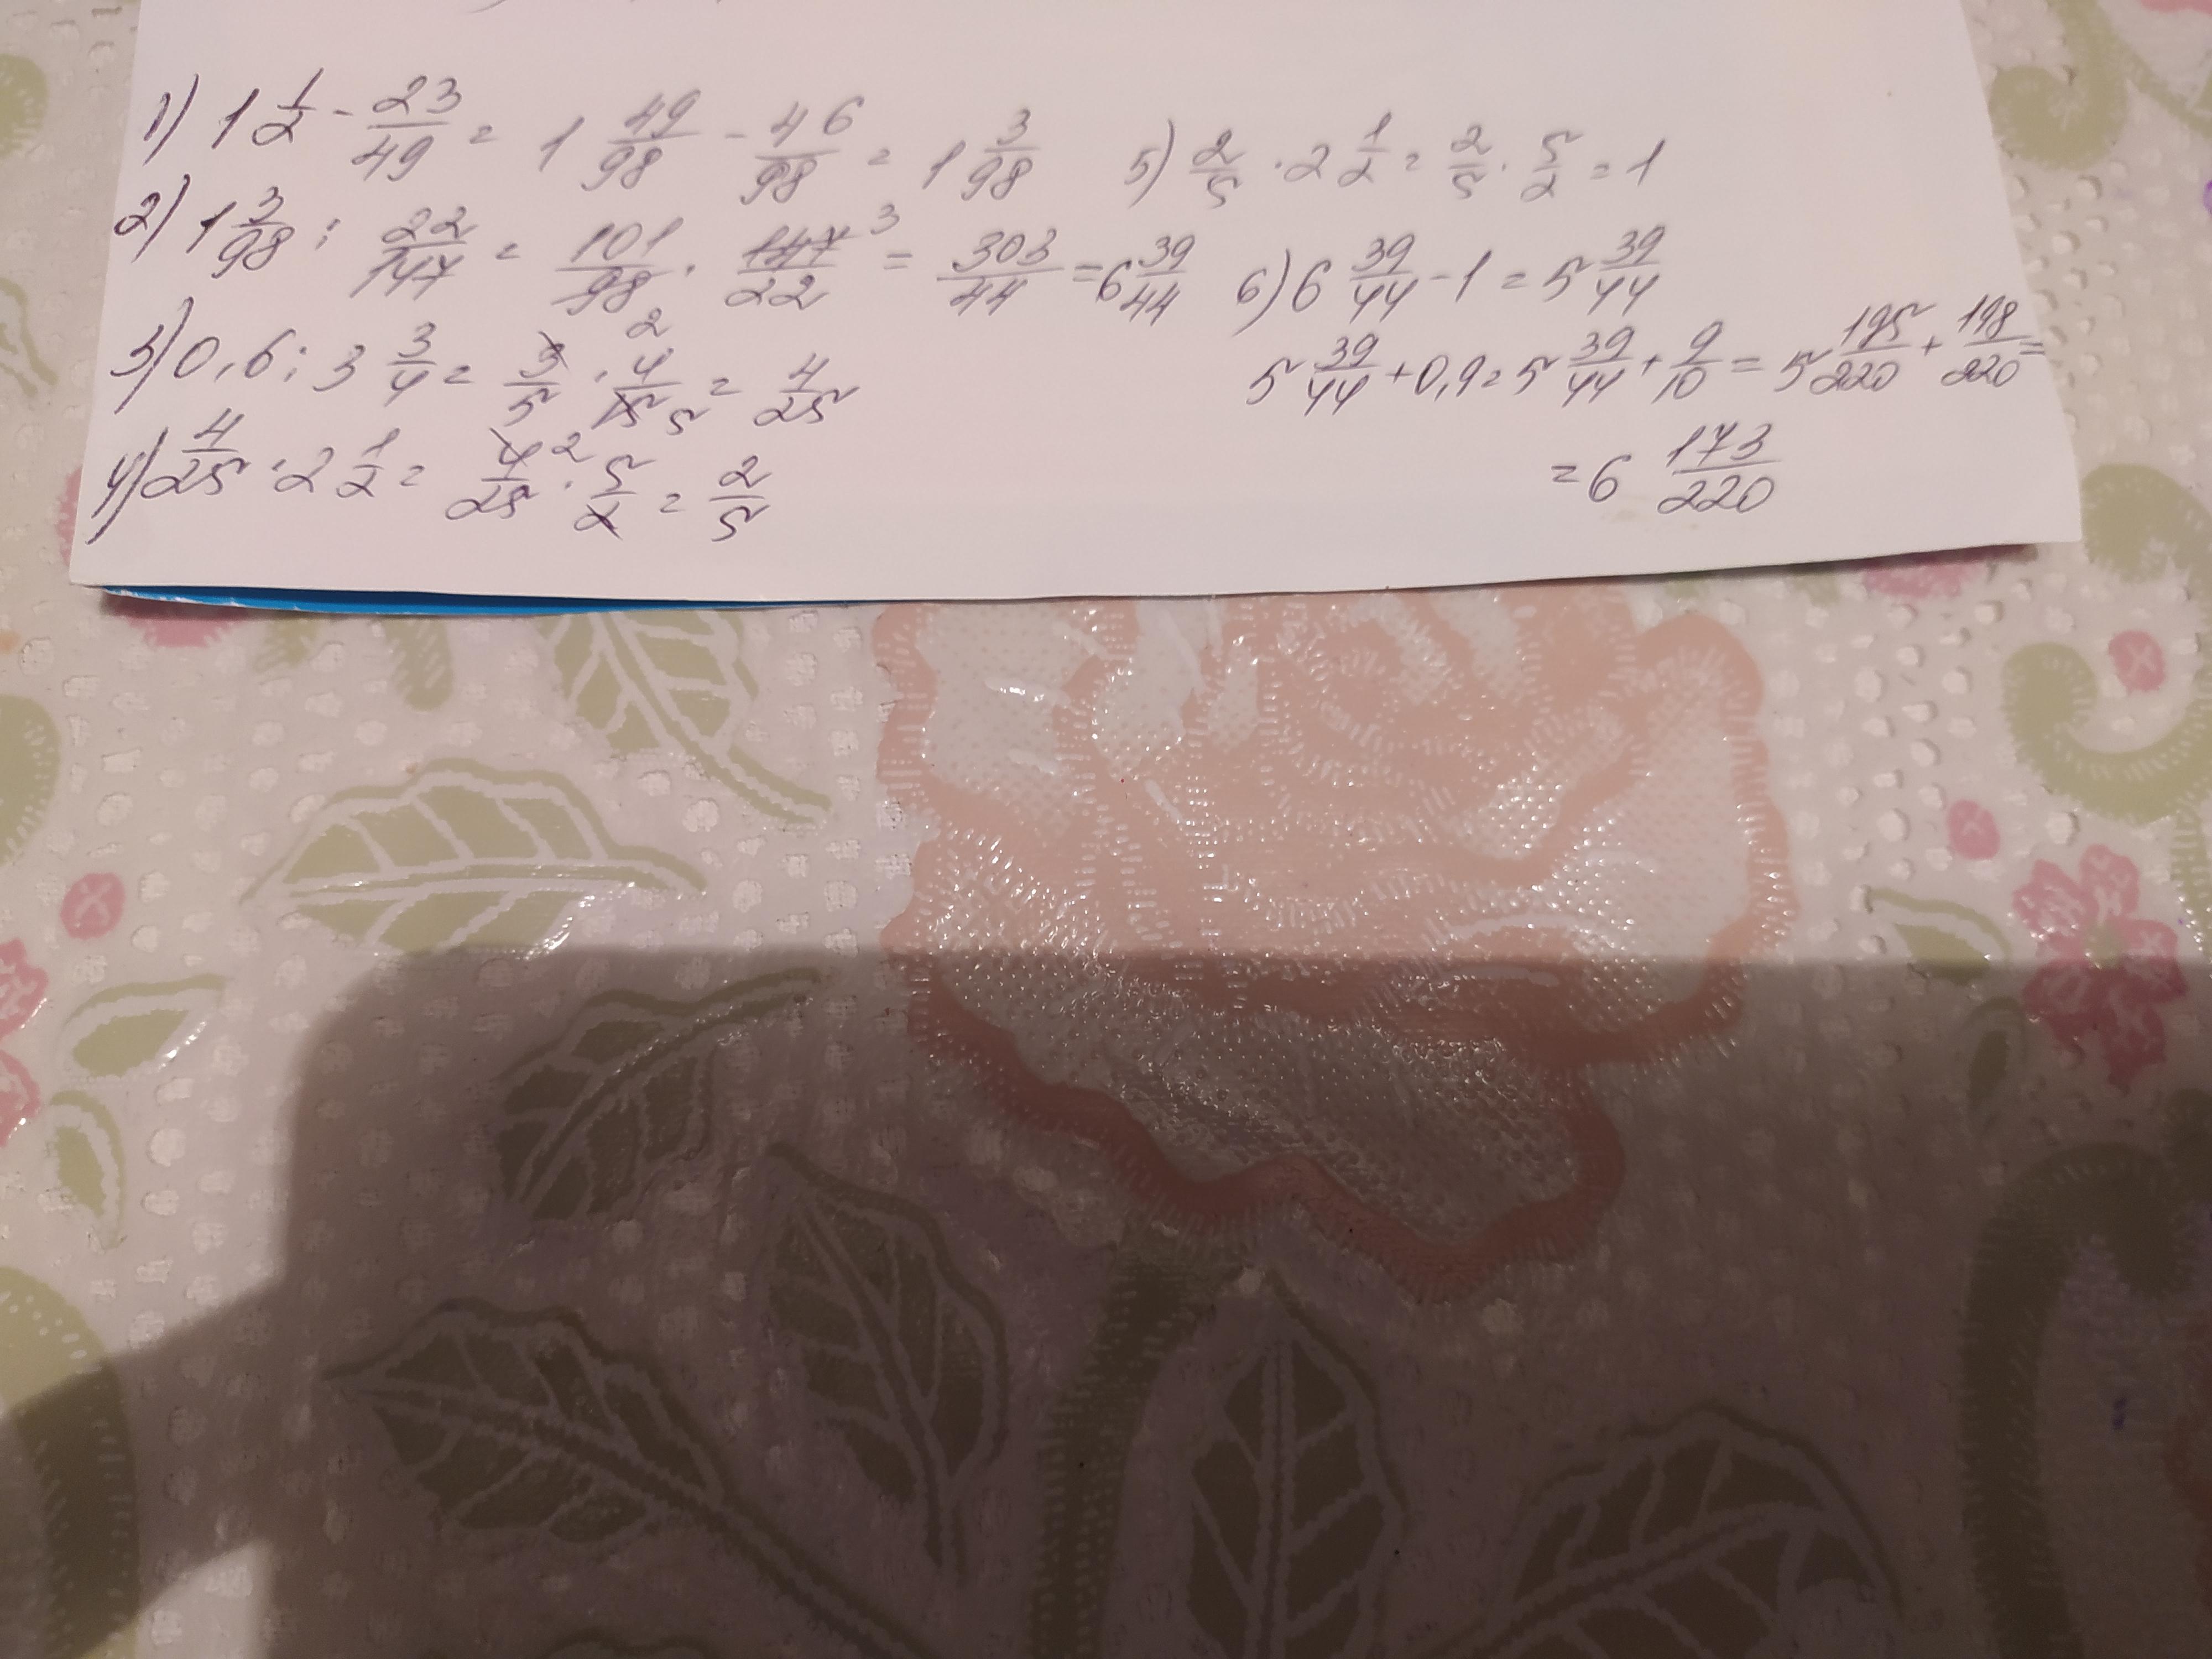 1) 1 1/2 - 23/49 = 1 49/98 - 46/98 = 1 3/98
2) 1 3/98 : 22/147 = 101/98 · 147/22 3 = 303/44 = 6 39/44
2
3) 0,6 : 3 3/4 = 3/5 · 4/15 5 = 4/25
4) 4/25 · 2 1/2 = 4/25 2 · 5/2 = 2/5
5) 2/5 · 2 1/2 = 2/5 · 5/2 = 1
6) 6 39/44 - 1 = 5 39/44
5 39/44 + 0,9 = 5 39/44 + 9/10 = 5 195/220 + 198/220 =
= 6 173/220